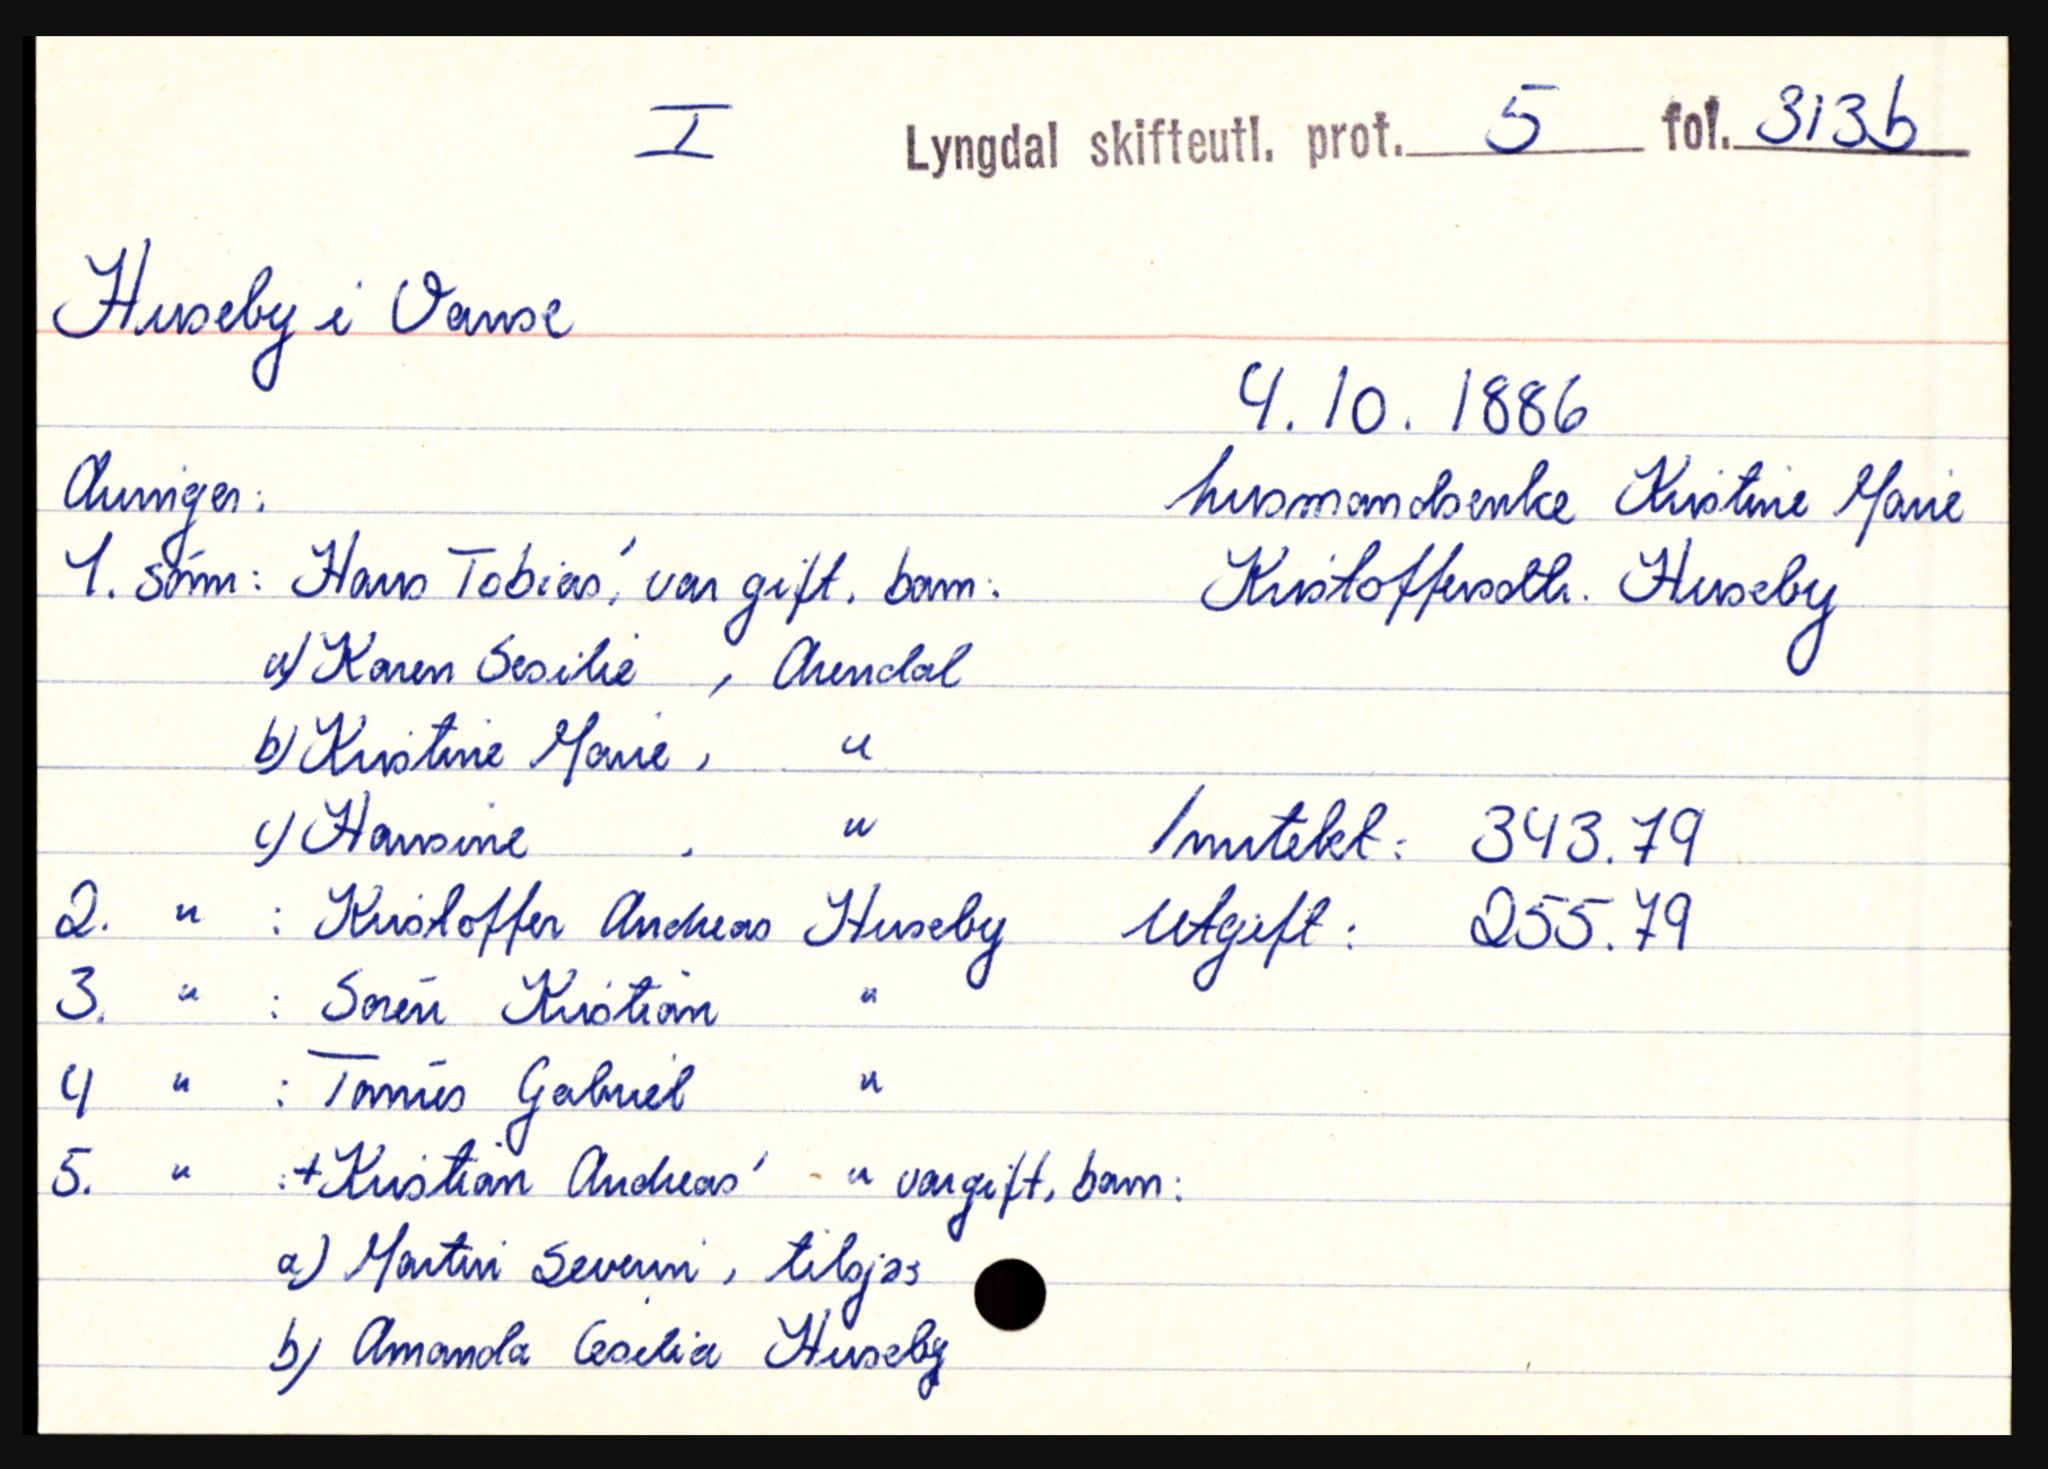 I Lyngdal skifteutl. prot. 5 fol. 313b
Huseby i Vanse
4.10.1886
Arvinger: husmandsenke Kristine Marie
1. sönn: Hans Tobias', var gift. barn: Kristoffersdtr. Huseby
a) Karen Sesilie , Arendal
b) Kristine Marie, "
c) Hansine , " Inntekt: 343.79
2. " : Kristoffer Andreas Huseby Utgift: 255.79
3. " : Soren Kristian "
4 " : Tomies Gabriel "
5. " :+Kristian Andreas' - " var gift, barn:
a) Martin Severin, tilsjøs
b) Amanda Cesilia Huseby